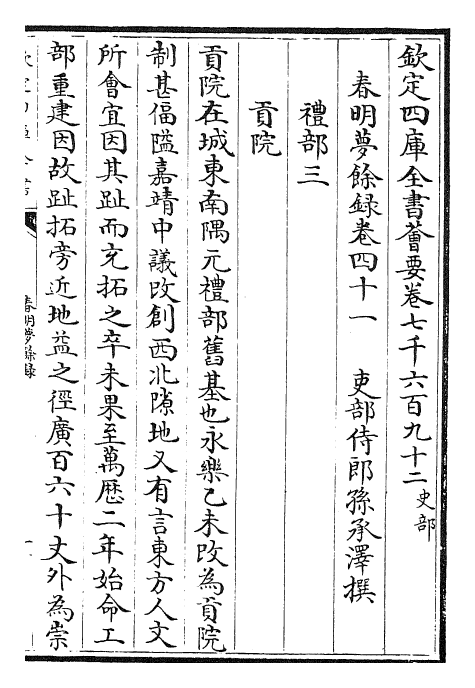 欽定四庫全書薈要卷七千六百九十二史部
春明夢餘録卷四十一　吏部侍郎孫承澤撰
禮部三
貢院
貢院在城東南隅元禮部舊基也永樂乙未改為貢院
制甚偪隘嘉靖中議改創西北隙地又有言東方人文
所會宜因其趾而充拓之卒未果至萬歷二年始命工
部重建因故趾拓旁近地益之徑廣百六十丈外為崇
欽定四庫全書
春明夢餘録
一